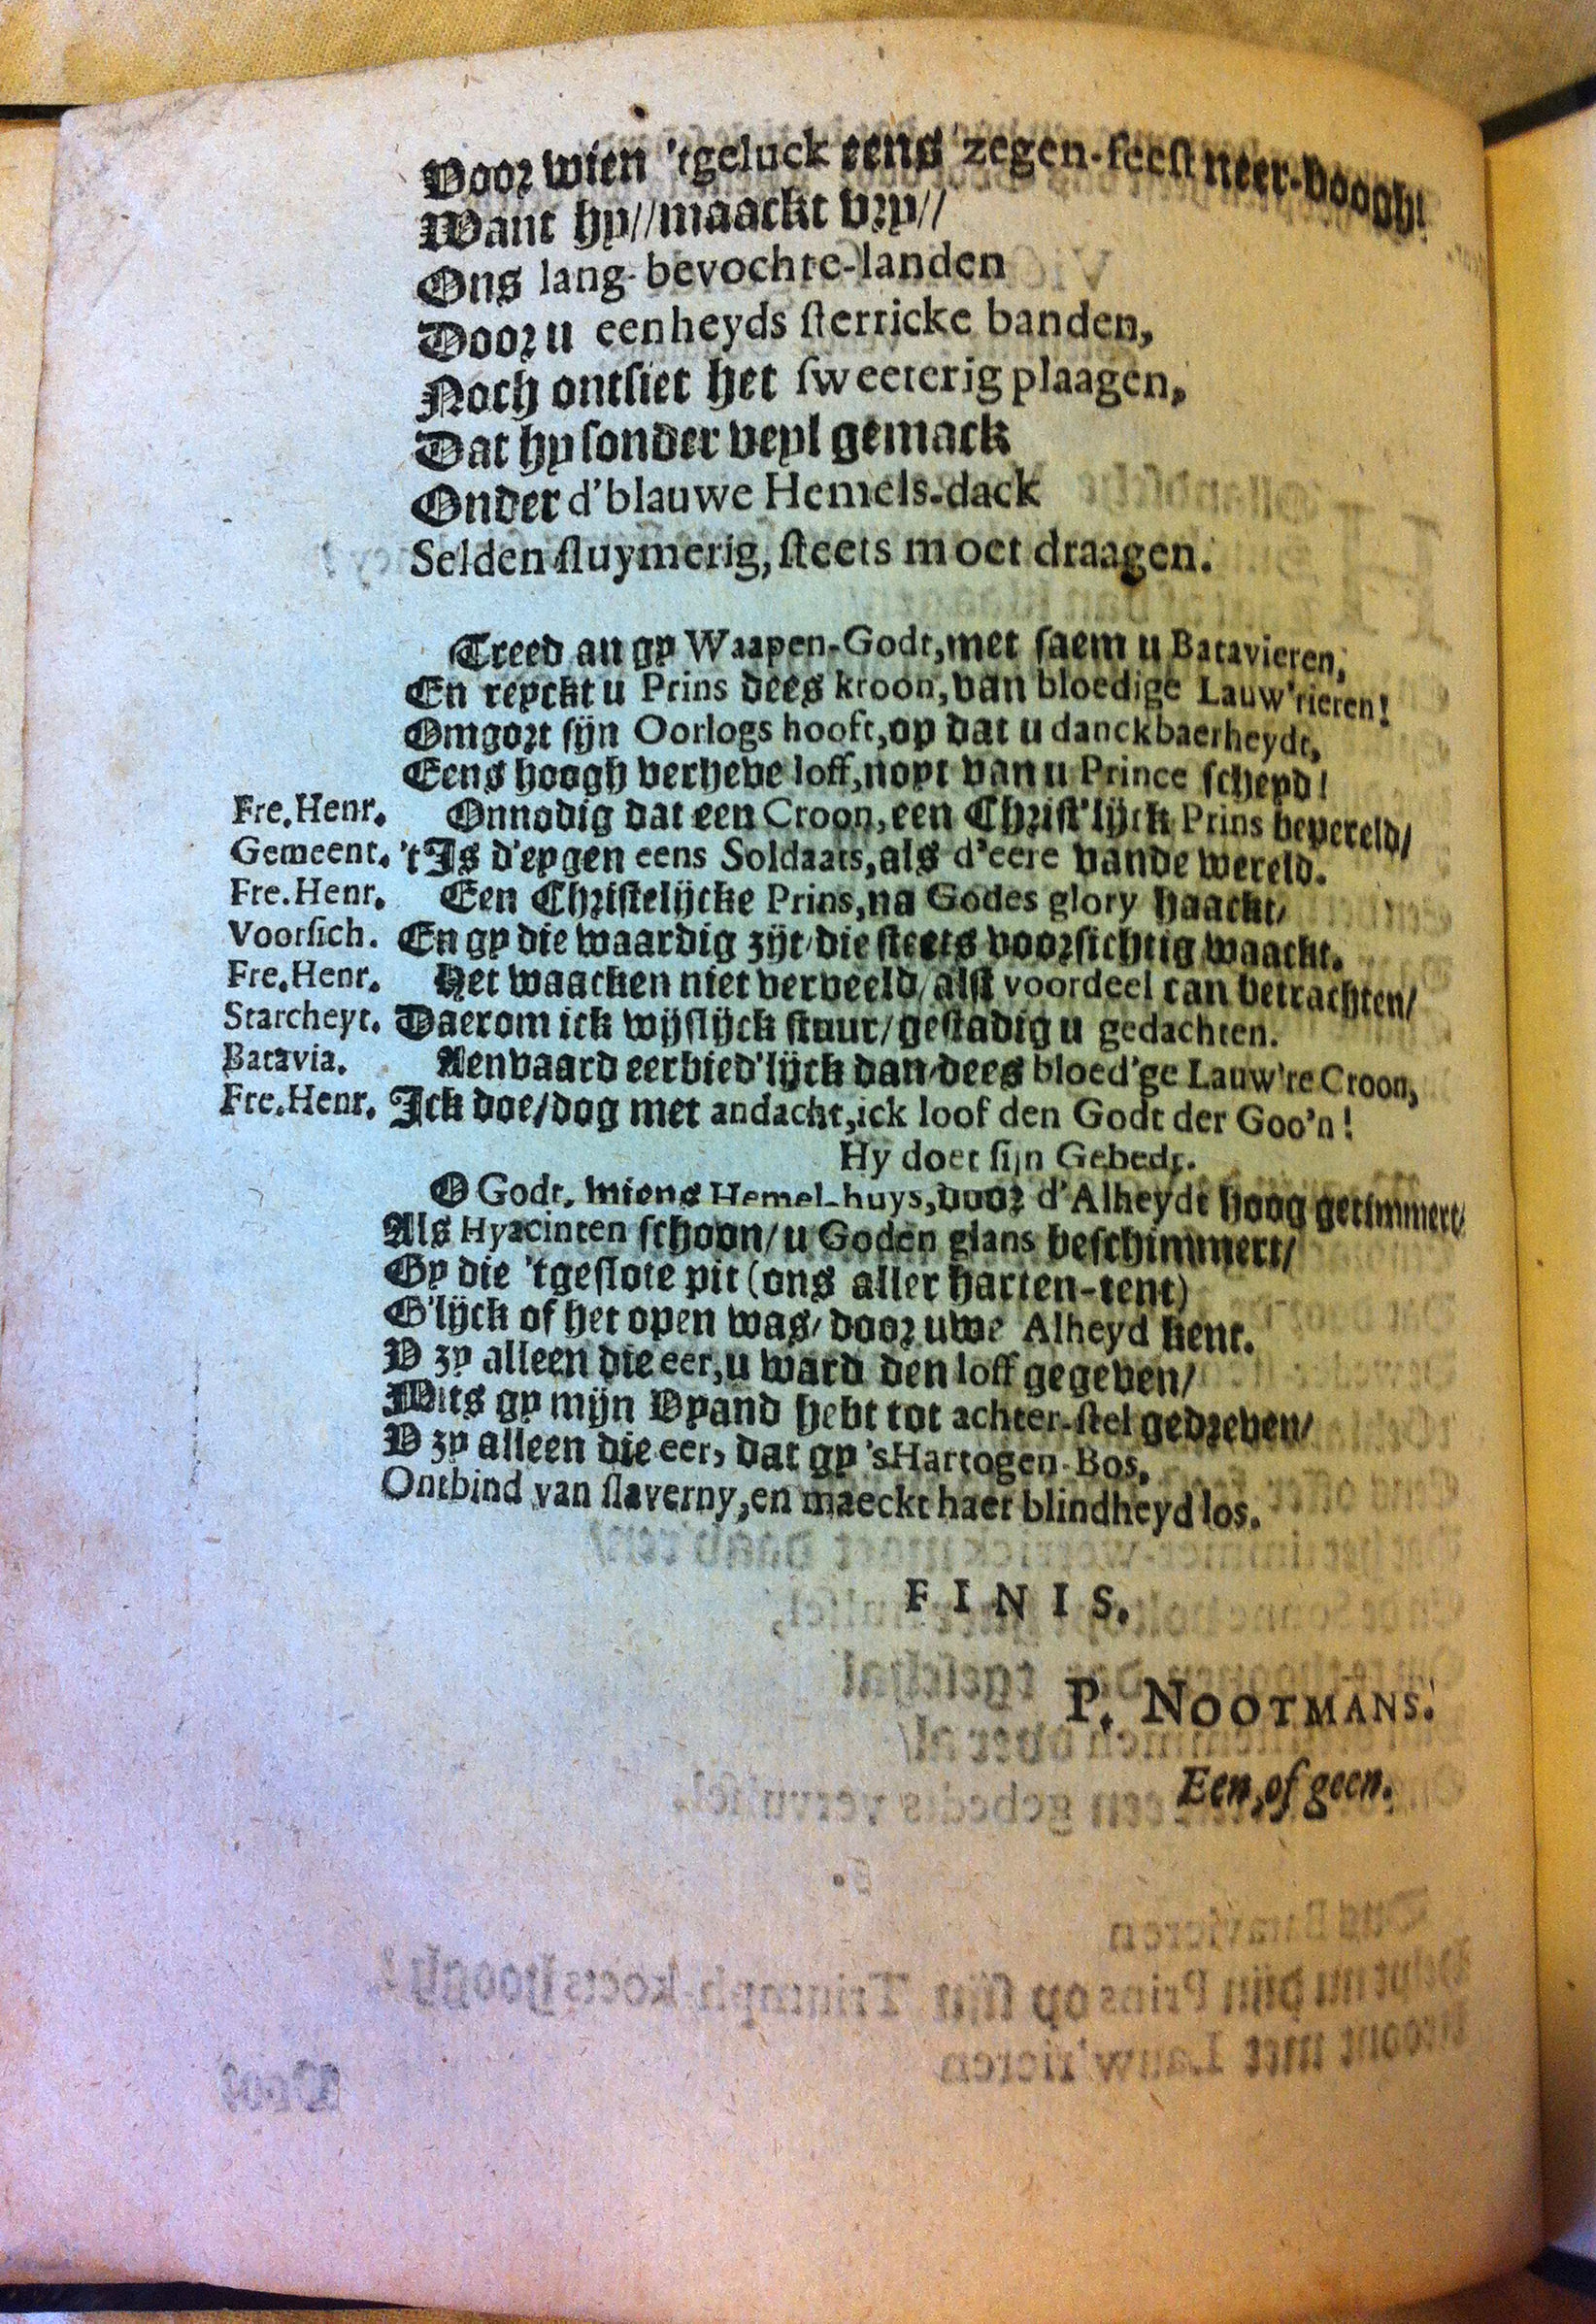 Voor wien 'tgeluck eens zegen-feest neer-boogh!
Want hy//maackt vry//
Ons lang-bevochte-landen
Door u eenheyds sterricke banden,
Noch ontsiet het sweeterig plaagen,
Dat hy sonder veyl gemack
Onder d'blauwe Hemels-dack
Selden sluymerig, steets moet draagen.
Treed an gy Waapen-Godt, met saem u Batavieren,
En reyckt u Prins dees kroon, van bloedige Lauw'rieren!
Omgort sijn Oorlogs hooft, op dat u danckbaerheydt,
Eens hoogh verheve loff, noyt van u Prince scheyd!
Fre. Henr. Onnodig dat een Croon, een Christ'lijck Prins bepereld/
Gemeent. 't Is d'eygen eens Soldaats, als d'eere vande wereld.
Fre. Henr. Een Christelijcke Prins, na Godes glory haackt/
Voorsich. En gy die waardig zijt/die steets voorsichtig waackt.
Fre. Henr. Het waacken niet verveeld/alst voordeel can betrachten/
Starcheyt. Daerom ick wijslijck stuur/gestadig u gedachten.
Batavia. Aenvaard eerbied'lijck dan dees bloed'ge Lauw're Croon,
Fre. Henr. Ick doe/dog met andacht, ick loof den Godt der Goo'n!
Hy doet sijn Gebedt.
O Godt, wiens Hemel-huys, door d'Alheydt hoog getimmert/
Als Hyacinten schoon/u Goden glans beschimmert/
Gy die 'tgeslote pit (ons aller harten-tent)
G'lijck of het open was/door uwe Alheyd kent.
V zy alleen die eer, u ward den loff gegeven/
Mits gy mijn Vyand hebt tot achter-stel gedreven/
V zy alleen die eer, dat gy 'sHartogen-Bos,
Ontbind van slaverny, en maeckt haer blindheyd los.
FINIS.
P. NOOTMANS.
Een, of geen.